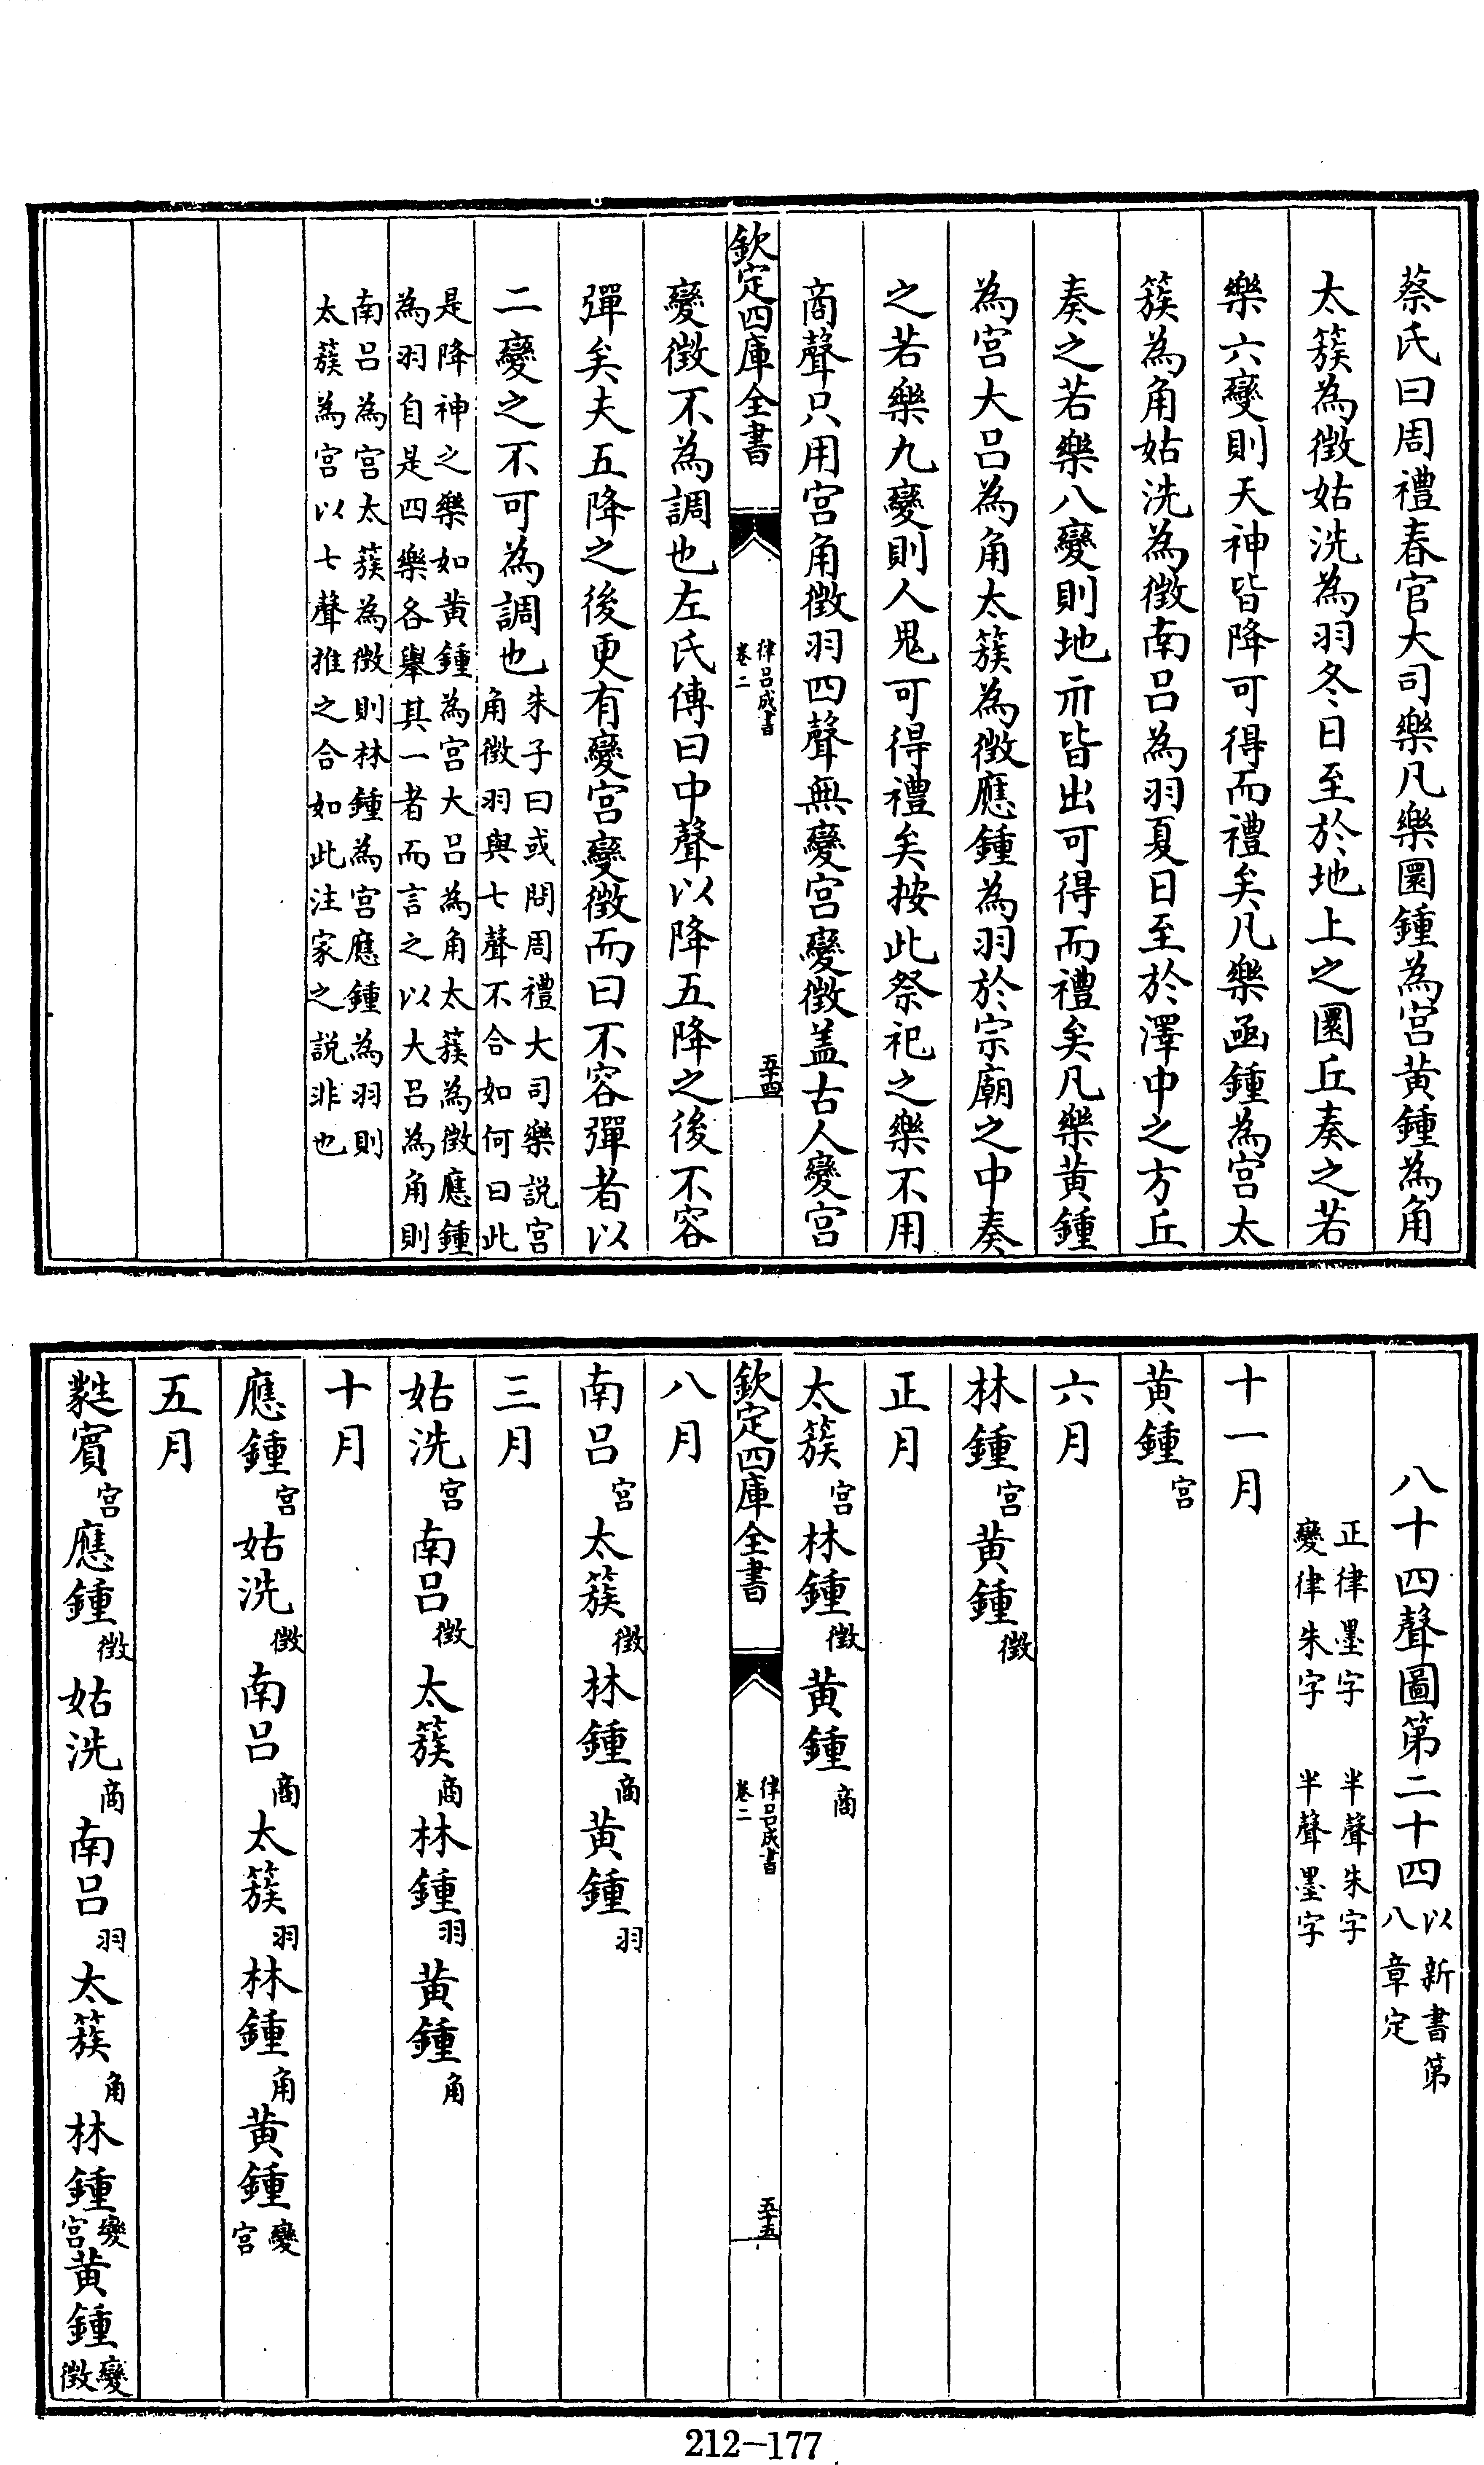 蔡氏曰周禮春官大司樂凡樂圜鍾為宫黄鍾為角
太簇為徵姑洗為羽冬日至於地上之圜丘奏之若
樂六變則天神皆降可得而禮矣凡樂函鍾為宫太
簇為角姑洗為徵南吕為羽夏日至於澤中之方丘
奏之若樂八變則地示皆出可得而禮矣凡樂黄鍾
為宫大吕為角太簇為徵應鍾為羽於宗廟之中奏
之若樂九變則人鬼可得禮矣按此祭祀之樂不用
商聲只用宫角徵羽四聲無變宫變徵蓋古人變宫
欽定四庫全書
律吕成書
卷二
五十四
變徵不為調也左氏傳曰中聲以降五降之後不容
彈矣夫五降之後更有變宫變徵而曰不容彈者以
二變之不可為調也
朱子曰或問周禮大司樂説宫
角徵羽與七聲不合如何曰此
是降神之樂如黄鍾為宫大吕為角太簇為徵應鍾
為羽自是四樂各舉其一者而言之以大吕為角則
南吕為宫太簇為徵則林鍾為宫應鍾為羽則
太簇為宫以七聲推之合如此注家之説非也
八十四聲圖第二十四
以新書第
八章定
正律墨字 半聲朱字
變律朱字 半聲墨字
十一月
黄鍾宫
六月
林鍾宫黄鍾徵
正月
太簇宫林鍾徵黄鍾商
欽定四庫全書
律吕成書
卷二
五十五
八月
南吕宫太簇徵林鍾商黄鍾羽
三月
姑洗宫南吕徵太簇商林鍾羽黄鍾角
十月
應鍾宫姑洗徵南吕商太簇羽林鍾角黄鍾變宫
五月
蕤賓宫應鍾徵姑洗商南吕羽太簇角林鍾變宫黄鍾變徵
212-177